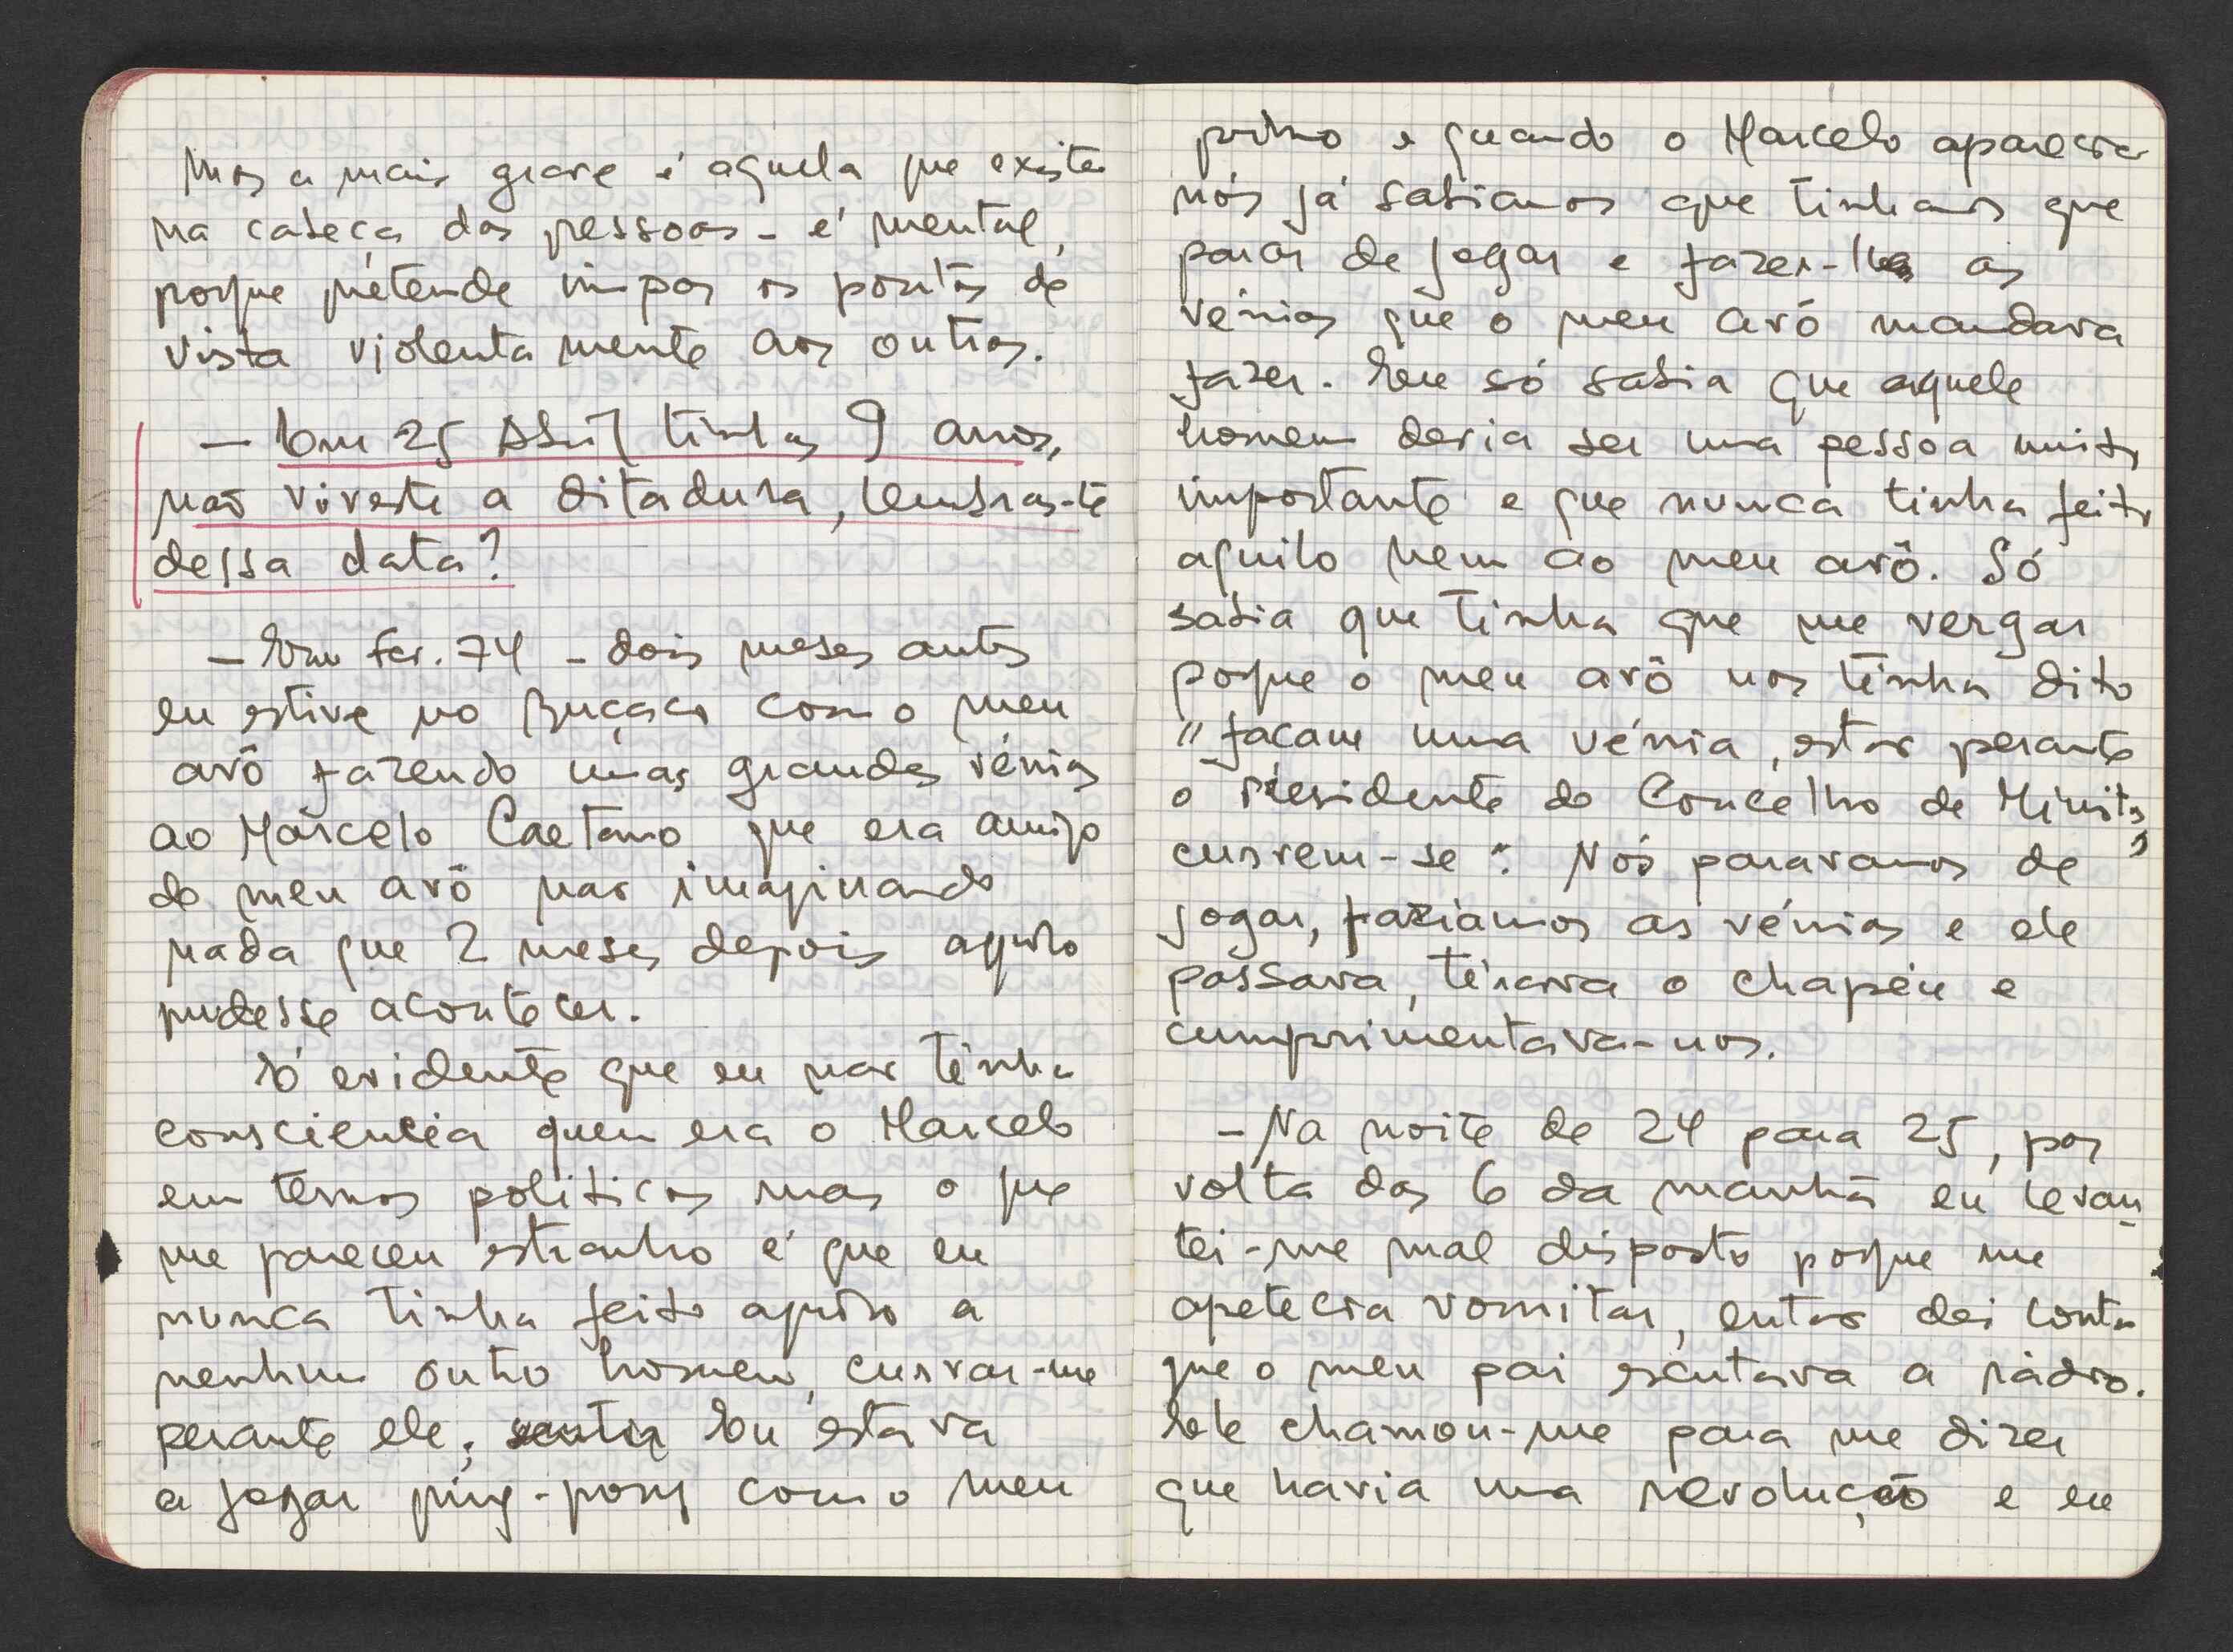 Mas a mais grave é aquela que existe
na cabeça das pessoas - é mental,
porque pretende impor os pontos de
vista violentamente aos outros.
- Em 25 Abril tinhas 9 anos,
não viveste a ditadura, lembras-te
dessa data?
- Em Fev. 74 - dois meses antes
eu estive no Buçaco com o meu
avô fazendo umas grandes vénias
ao Marcelo Caetano que era amigo
do meu avô não imaginando
nada que 2 meses depois aquilo
pudesse acontecer.
É evidente que eu não tinha
consciência quem era o Marcelo
em termos politicos mas o que
me pareceu estranho é que eu
nunca tinha feito aquilo a
nenhum outro homem, curvar-me
perante ele; Eu estava
a jogar ping-pong com o meu
primo e quando o Marcelo aparecia
nós já sabiamos que tinhamos que
parar de jogar e fazer-lhe as
vénias que o meu avô mandava
fazer. Eu só sabia que aquele
homem devia ser uma pessoa muito
importante e que nunca tinha feito
aquilo nem ao meu avô. Só
sabia que tinha que me vergar
porque o meu avô nos tinha dito
"façam uma vénia, estão perante
o Presidente do Concelho de Ministros,
curvem-se". Nós paravamos de
jogar, faziamos as vénias e ele
passava, tirava o chapéu e
cumprimentava-nos.
- Na noite de 24 para 25, por
volta das 6 da manhã eu levan
tei-me mal disposto porque me
apetecia vomitar, então dei conta
que o meu pai escutava a rádio.
Ele chamou-me para me dizer
que havia uma revolução e eu